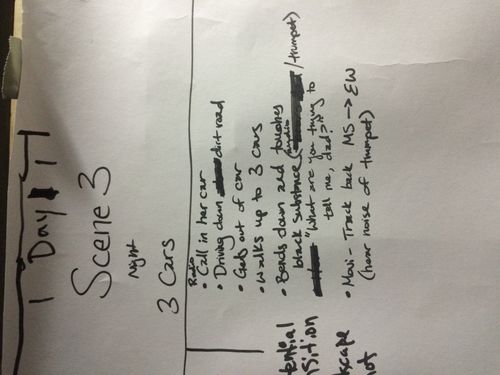 1 Day 14
Scene 3
Night
3 Cars
Radio
• Call in her car
• Driving down dirt road
• Gets out of car
• Walks up to 3 cars
• Bends down and touches
black substance (audio /trumpet)
"What are you trying to
tell me, dad?"
• Movi - Track back MS → EW
(hear noise of trumpet)